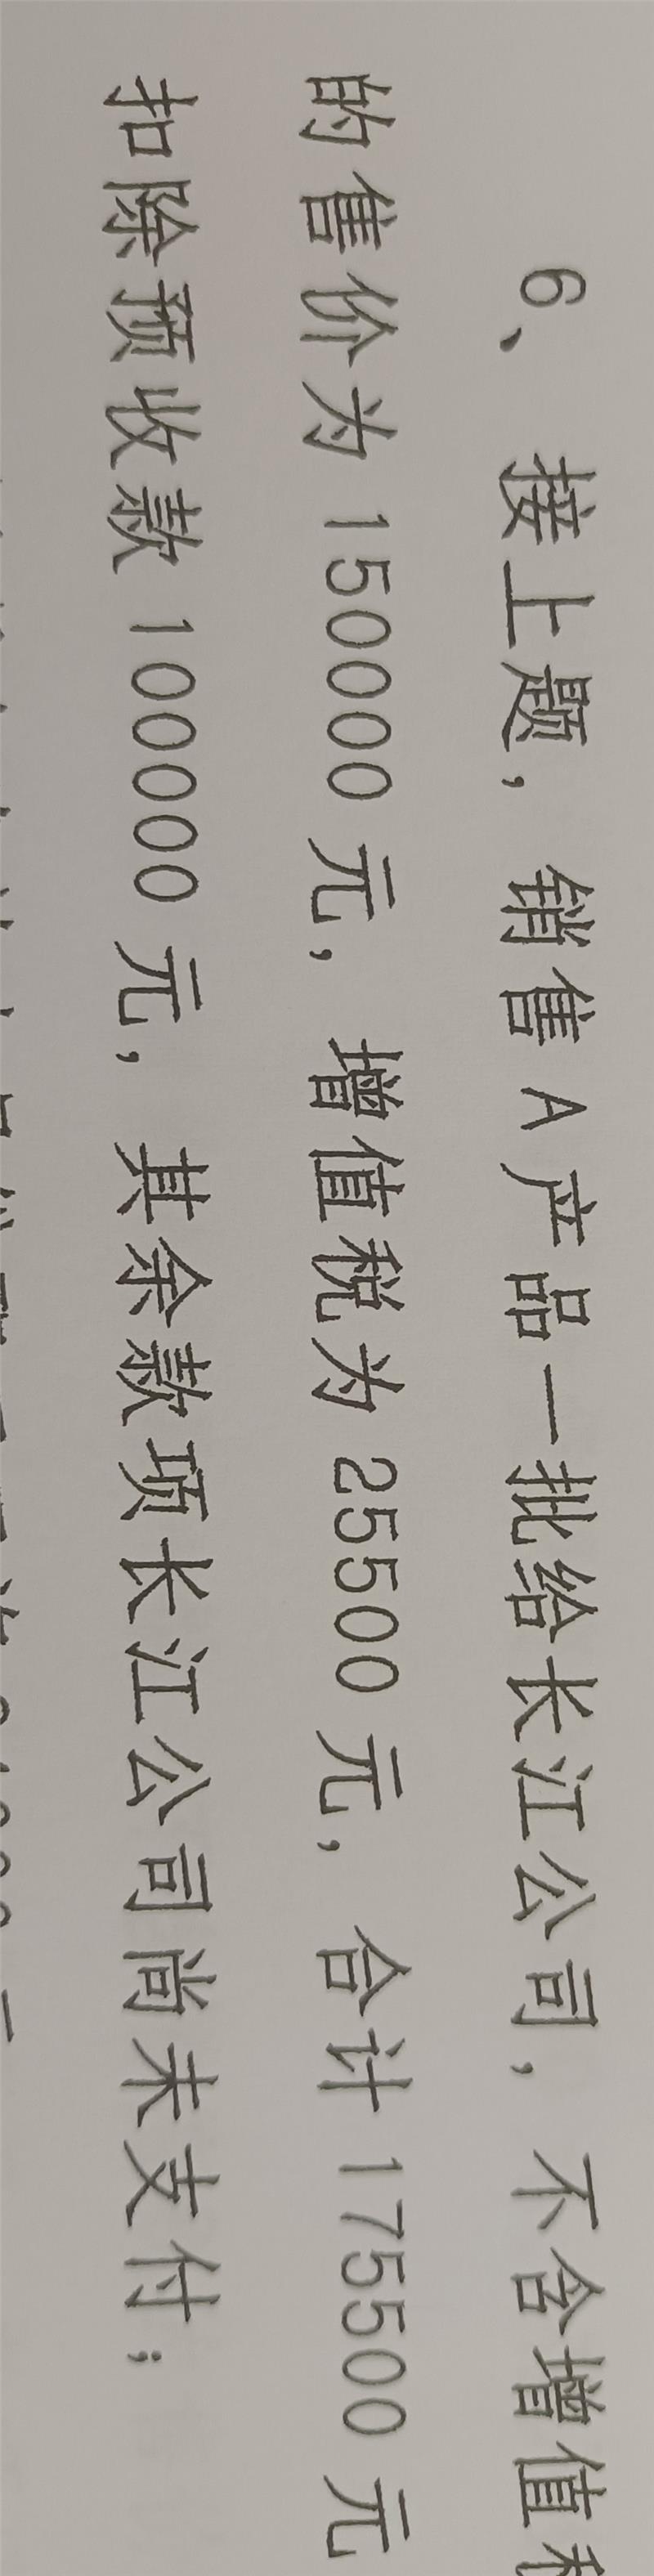 6、接上题，销售A产品一批给长江公司，不含增值
的售价为150000元，增值税为25500元，合计175500元
扣除预收款100000元，其余款项长江公司尚未支付；